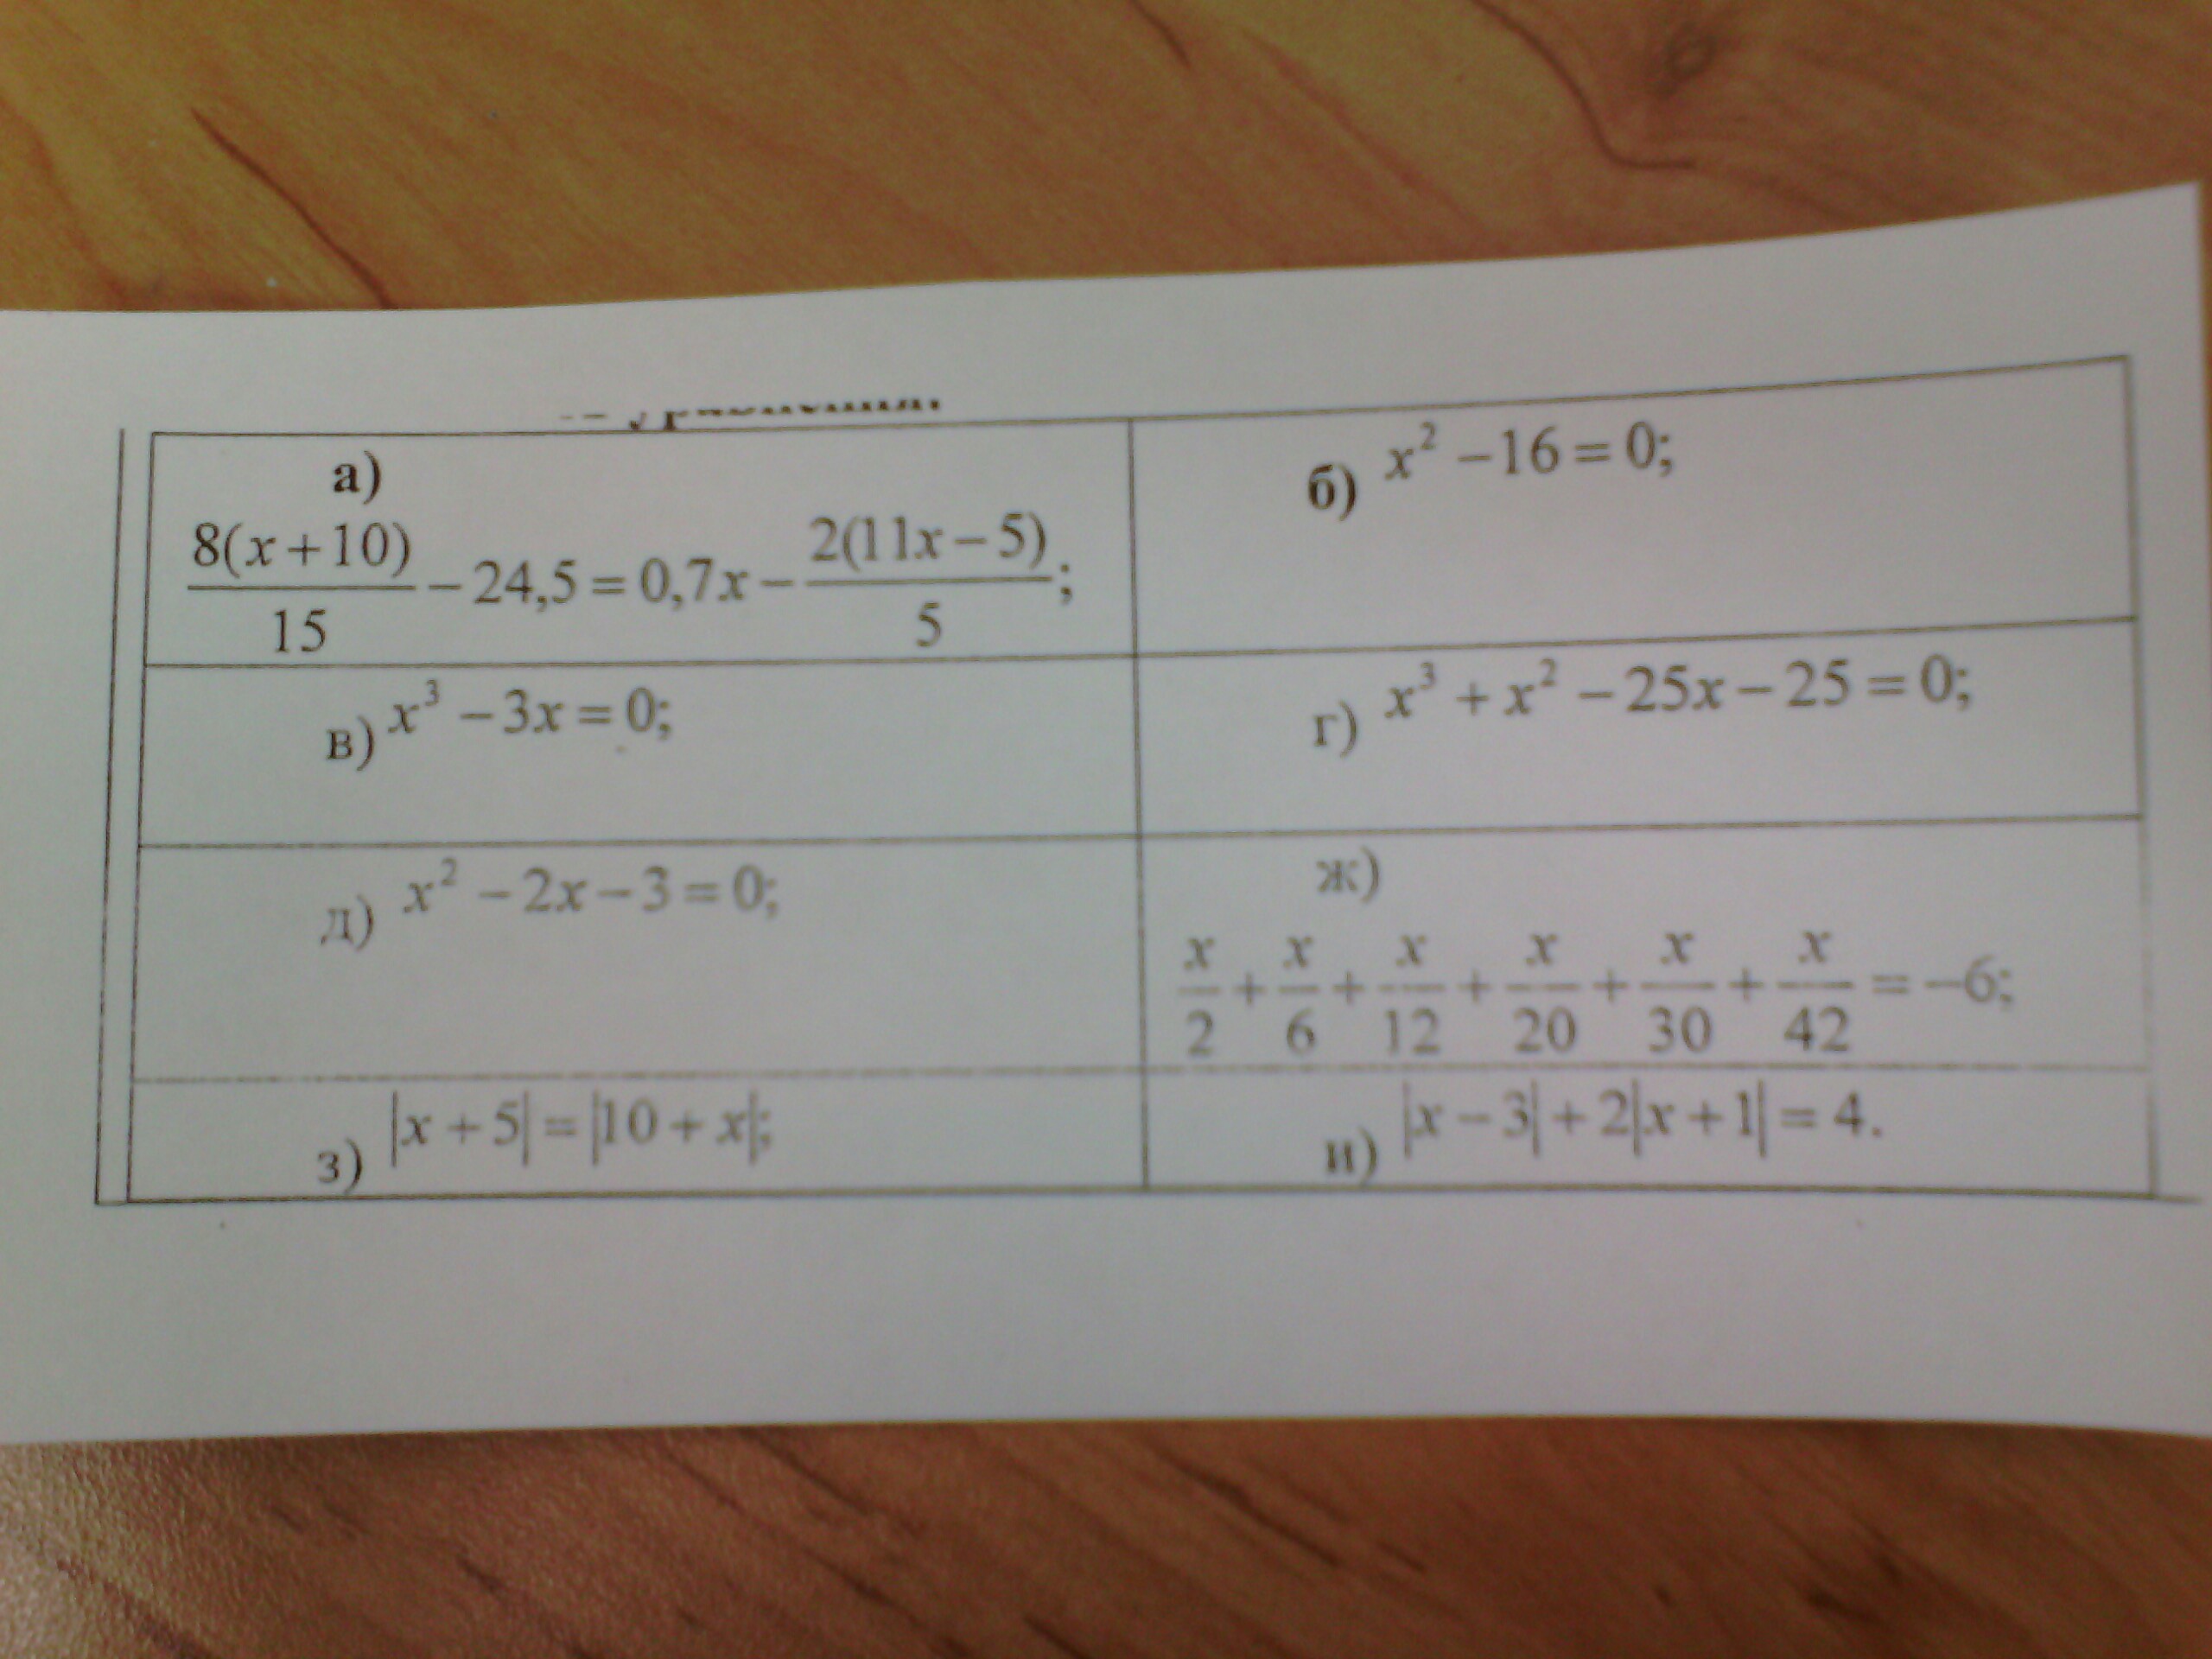 а)
8(x+10)/15 − 24,5 = 0,7x − 2(11x−5)/5;
б) x² − 16 = 0;
в) x³ − 3x = 0;
г) x³ + x² − 25x − 25 = 0;
д) x² − 2x − 3 = 0;
ж)
x/2 + x/6 + x/12 + x/20 + x/30 + x/42 = −6;
з) |x + 5| = |10 + x|;
и) |x − 3| + 2|x + 1| = 4.